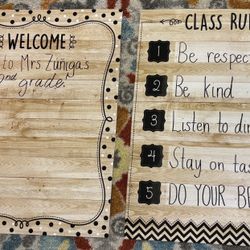 WELCOME
to Mrs Zuniga's
2nd grade.
CLASS RU
1 Be respec
2 Be kind
3 Listen to di
4 Stay on tas
5 DO YOUR BE